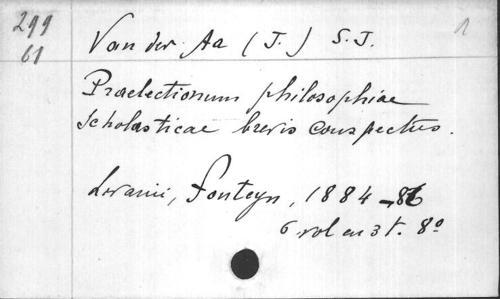 299
61
Van der Aa (J.) S. J.
1
Praelectionum philosophiae
scholasticae brevis conspectus.
Lovanii, Fonteyn, 1884-86
6 vol en 3 t. 8º